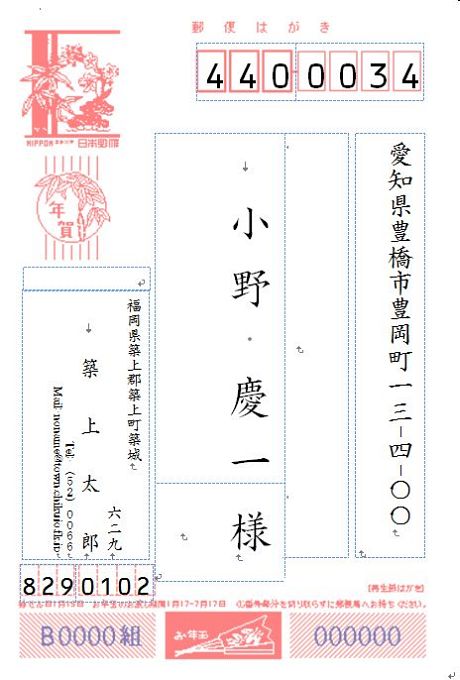 郵便はがき
4400034
NIPPON
日本郵便
年賀
愛知県豊橋市豊岡町一三-四-〇〇
小野 慶一 様
福岡県築上郡築上町築城
六二九
築上太郎
Tel (52) 0066
8290102
[再生紙はがき]
B0000組
お年玉
000000